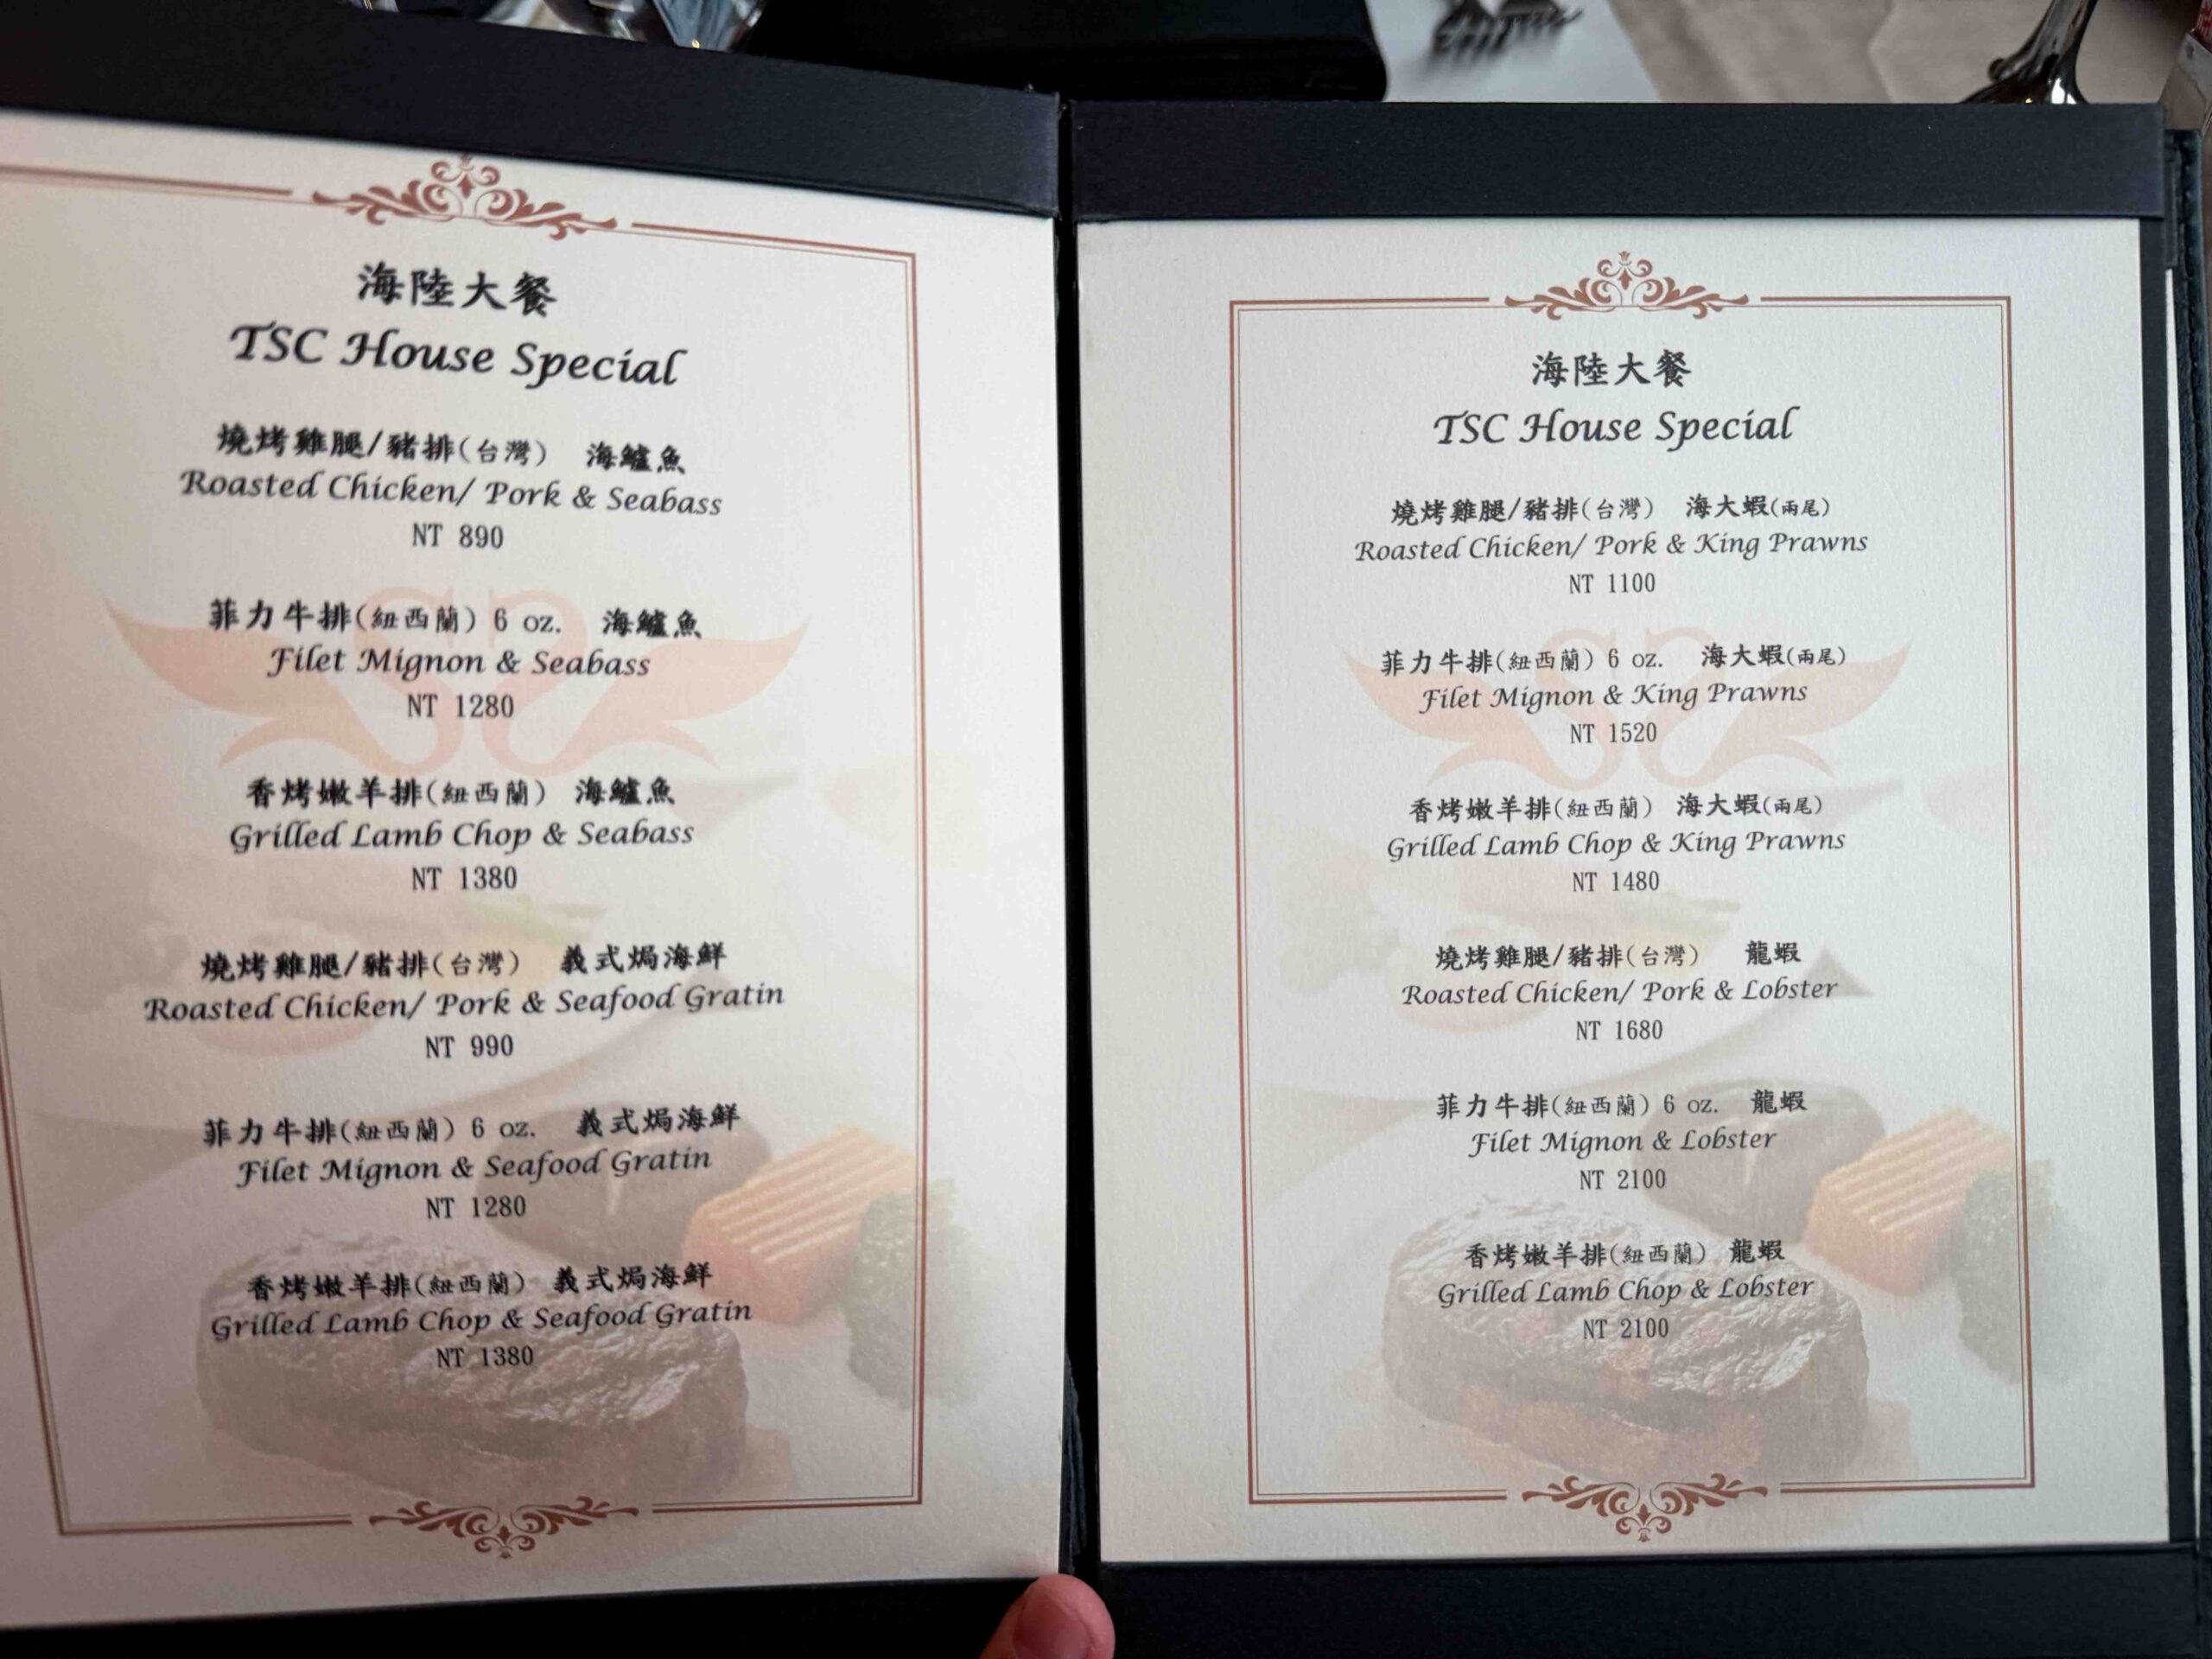 海陸大餐
TSC House Special
燒烤雞腿/豬排(台灣) 海鱸魚
Roasted Chicken/ Pork & Seabass
NT 890
菲力牛排(紐西蘭) 6 oz. 海鱸魚
Filet Mignon & Seabass
NT 1280
香烤嫩羊排(紐西蘭) 海鱸魚
Grilled Lamb Chop & Seabass
NT 1380
燒烤雞腿/豬排(台灣) 義式焗海鮮
Roasted Chicken/ Pork & Seafood Gratin
NT 990
菲力牛排(紐西蘭) 6 oz. 義式焗海鮮
Filet Mignon & Seafood Gratin
NT 1280
香烤嫩羊排(紐西蘭) 義式焗海鮮
Grilled Lamb Chop & Seafood Gratin
NT 1380
海陸大餐
TSC House Special
燒烤雞腿/豬排(台灣) 海大蝦(兩尾)
Roasted Chicken/ Pork & King Prawns
NT 1100
菲力牛排(紐西蘭) 6 oz. 海大蝦(兩尾)
Filet Mignon & King Prawns
NT 1520
香烤嫩羊排(紐西蘭) 海大蝦(兩尾)
Grilled Lamb Chop & King Prawns
NT 1480
燒烤雞腿/豬排(台灣) 龍蝦
Roasted Chicken/ Pork & Lobster
NT 1680
菲力牛排(紐西蘭) 6 oz. 龍蝦
Filet Mignon & Lobster
NT 2100
香烤嫩羊排(紐西蘭) 龍蝦
Grilled Lamb Chop & Lobster
NT 2100